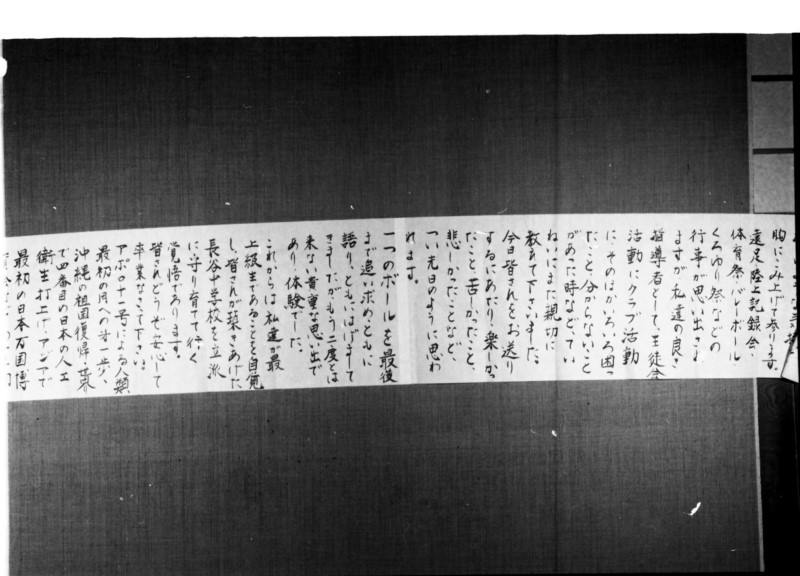 胸にこみ上げて参ります。
遠足、陸上記録会、
体育祭、バレーボール
くろゆり祭などの
行事が思い出され
ますが私達の良き
指導者として、生徒会
活動にクラブ活動
に、そのほかいろいろ困っ
たこと、分からないこと
があった時など、てい
ねいにまた親切に
教えて下さいました。
今日皆さんをお送り
するにあたり、楽しかっ
たこと、苦しかったこと、
悲しかったことなど、
つい先日のように思わ
れます。
一つのボールを最後
まで追い求め、ともに
語り、ともにはげまして
きましたがもう二度とは
来ない貴重な思い出で
あり、体験でした。
これからは私達が最
上級生であることを自覚
し、皆さんが築きあげた、
長谷中学校を立派
に守り育てて行く
覚悟であります。
皆さんどうぞ安心して
卒業なさって下さい。
アポロ十一号による人類
最初の月への第一歩、
沖縄の祖国復帰、世界
で四番目の日本の人工
衛生打上げ、アジアで
最初の日本万国博